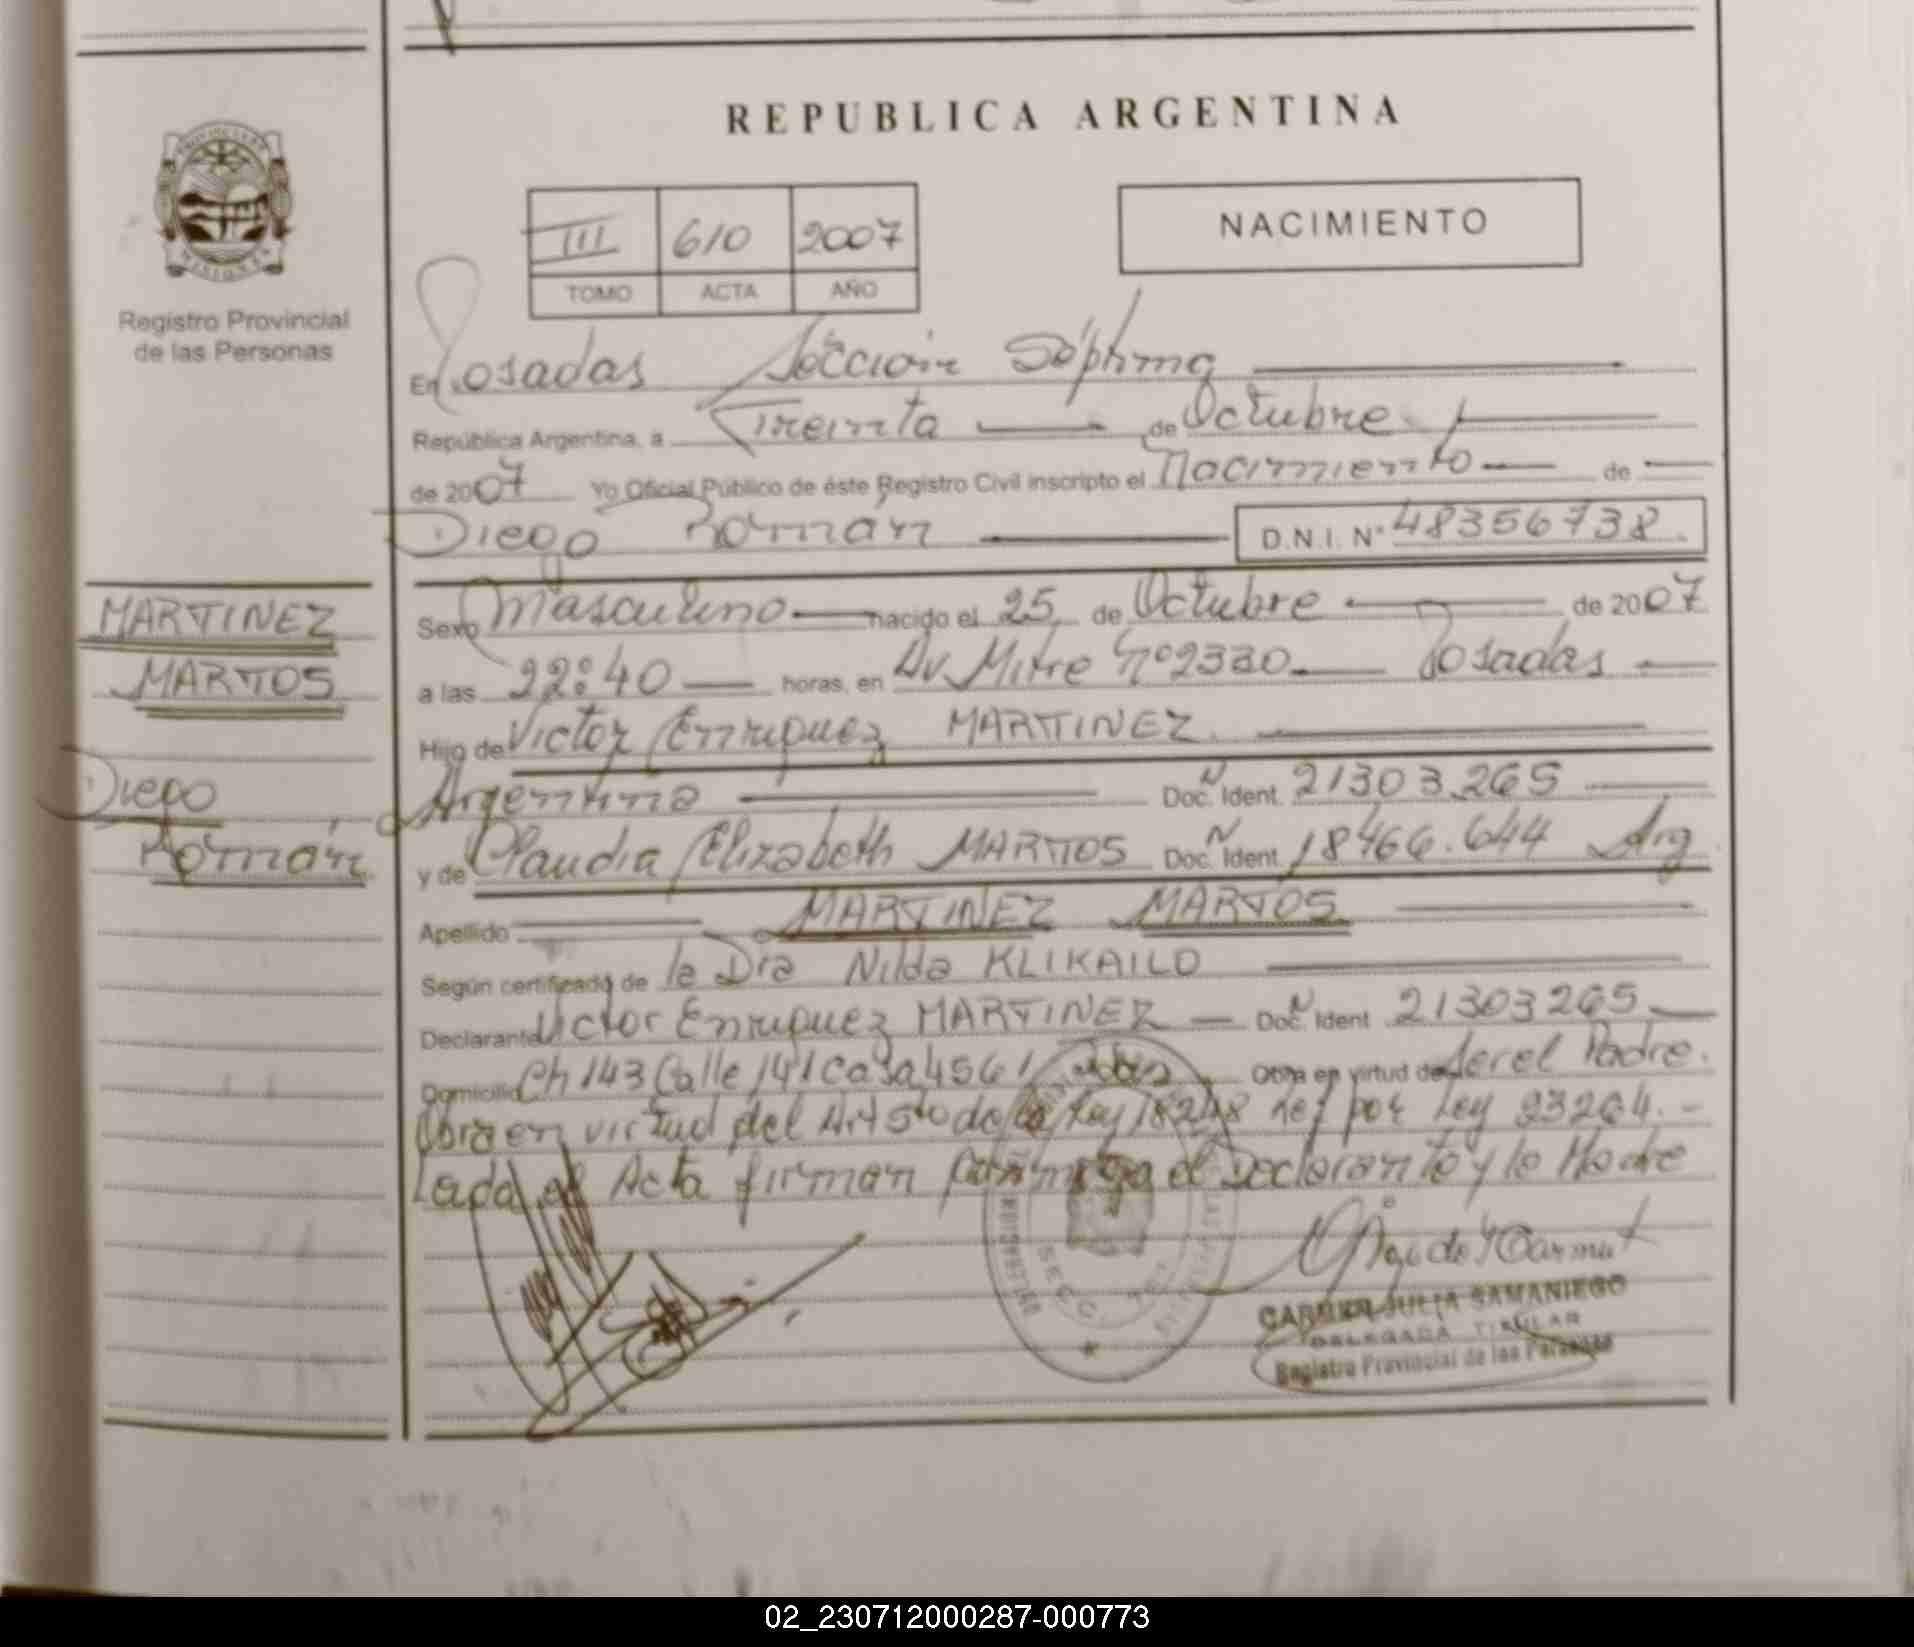 REPUBLICA ARGENTINA
III 610 2007
TOMO ACTA AÑO
NACIMIENTO
PROVINCIA DE
MISIONES
Registro Provincial
de las Personas
En Posadas Sección Séptima
República Argentina, a Treinta de Octubre
de 2007 Yo Oficial Público de éste Registro Civil inscripto el Nacimiento de
Diego Román D.N.I. Nº 48356738.
MARTINEZ
MARTOS
Diego
Román
Sexo Masculino nacido el 25 de Octubre de 2007
a las 22:40 horas, en Av Mitre Nº 2330 Posadas
Hijo de Victor Enriquez MARTINEZ
Argentina Doc. Ident. N 21303.265
y de Claudia Elizabeth MARTOS Doc. Ident. N 18466.644 Arg
Apellido MARTINEZ MARTOS
Según certificado de la Dra Nilda KLIKAILO
Declarante Victor Enriquez MARTINEZ Doc. Ident N 21303265
Domicilio Ch 143 Calle 141 Casa 4561 Obra en virtud de ser el Padre.
Obra en virtud del Art 5to de la Ley 18248 ref por Ley 23264.-
Leida el Acta firman conmigo el Declarante y la Madre
SECC.
CARMEN JULIA SAMANIEGO
DELEGADA TITULAR
Registro Provincial de las Personas
02_230712000287-000773